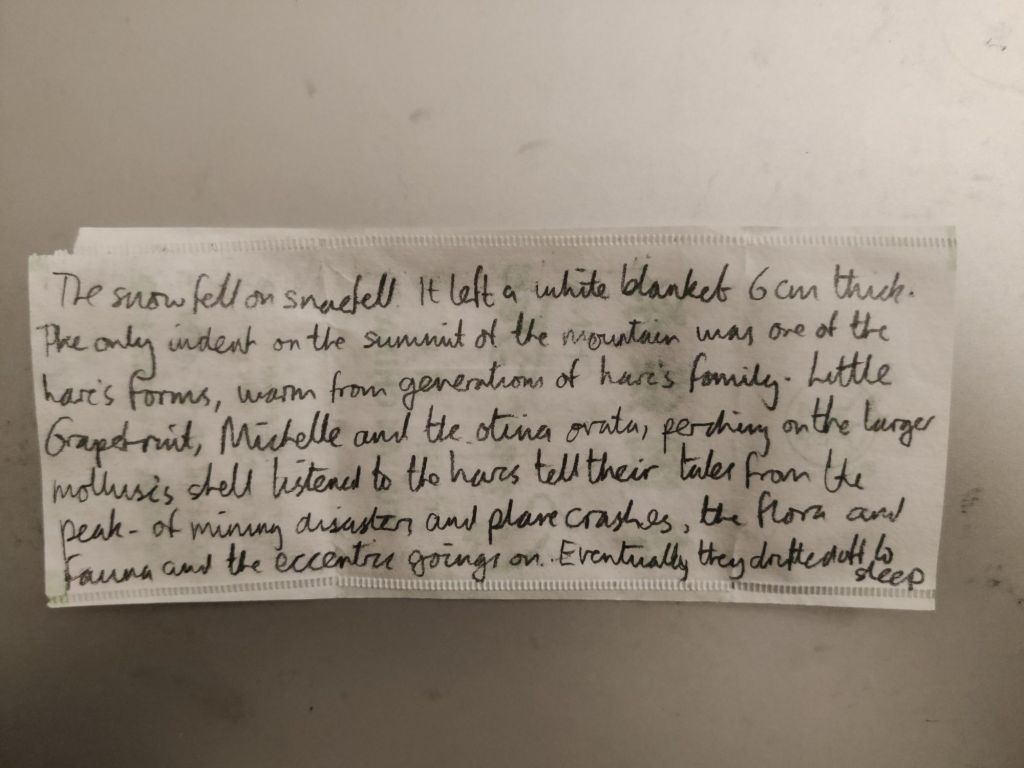 The snow fell on snaefell. It left a white blanket 6cm thick.
The only indent on the summit of the mountain was one of the
hare's forms, warm from generations of hare's family. Little
Grapefruit, Michelle and the otina ovata, perching on the larger
mollusc's shell listened to the hares tell their tales from the
peak - of mining disasters and plane crashes, the flora and
fauna and the eccentric goings on. Eventually they drifted off to
sleep